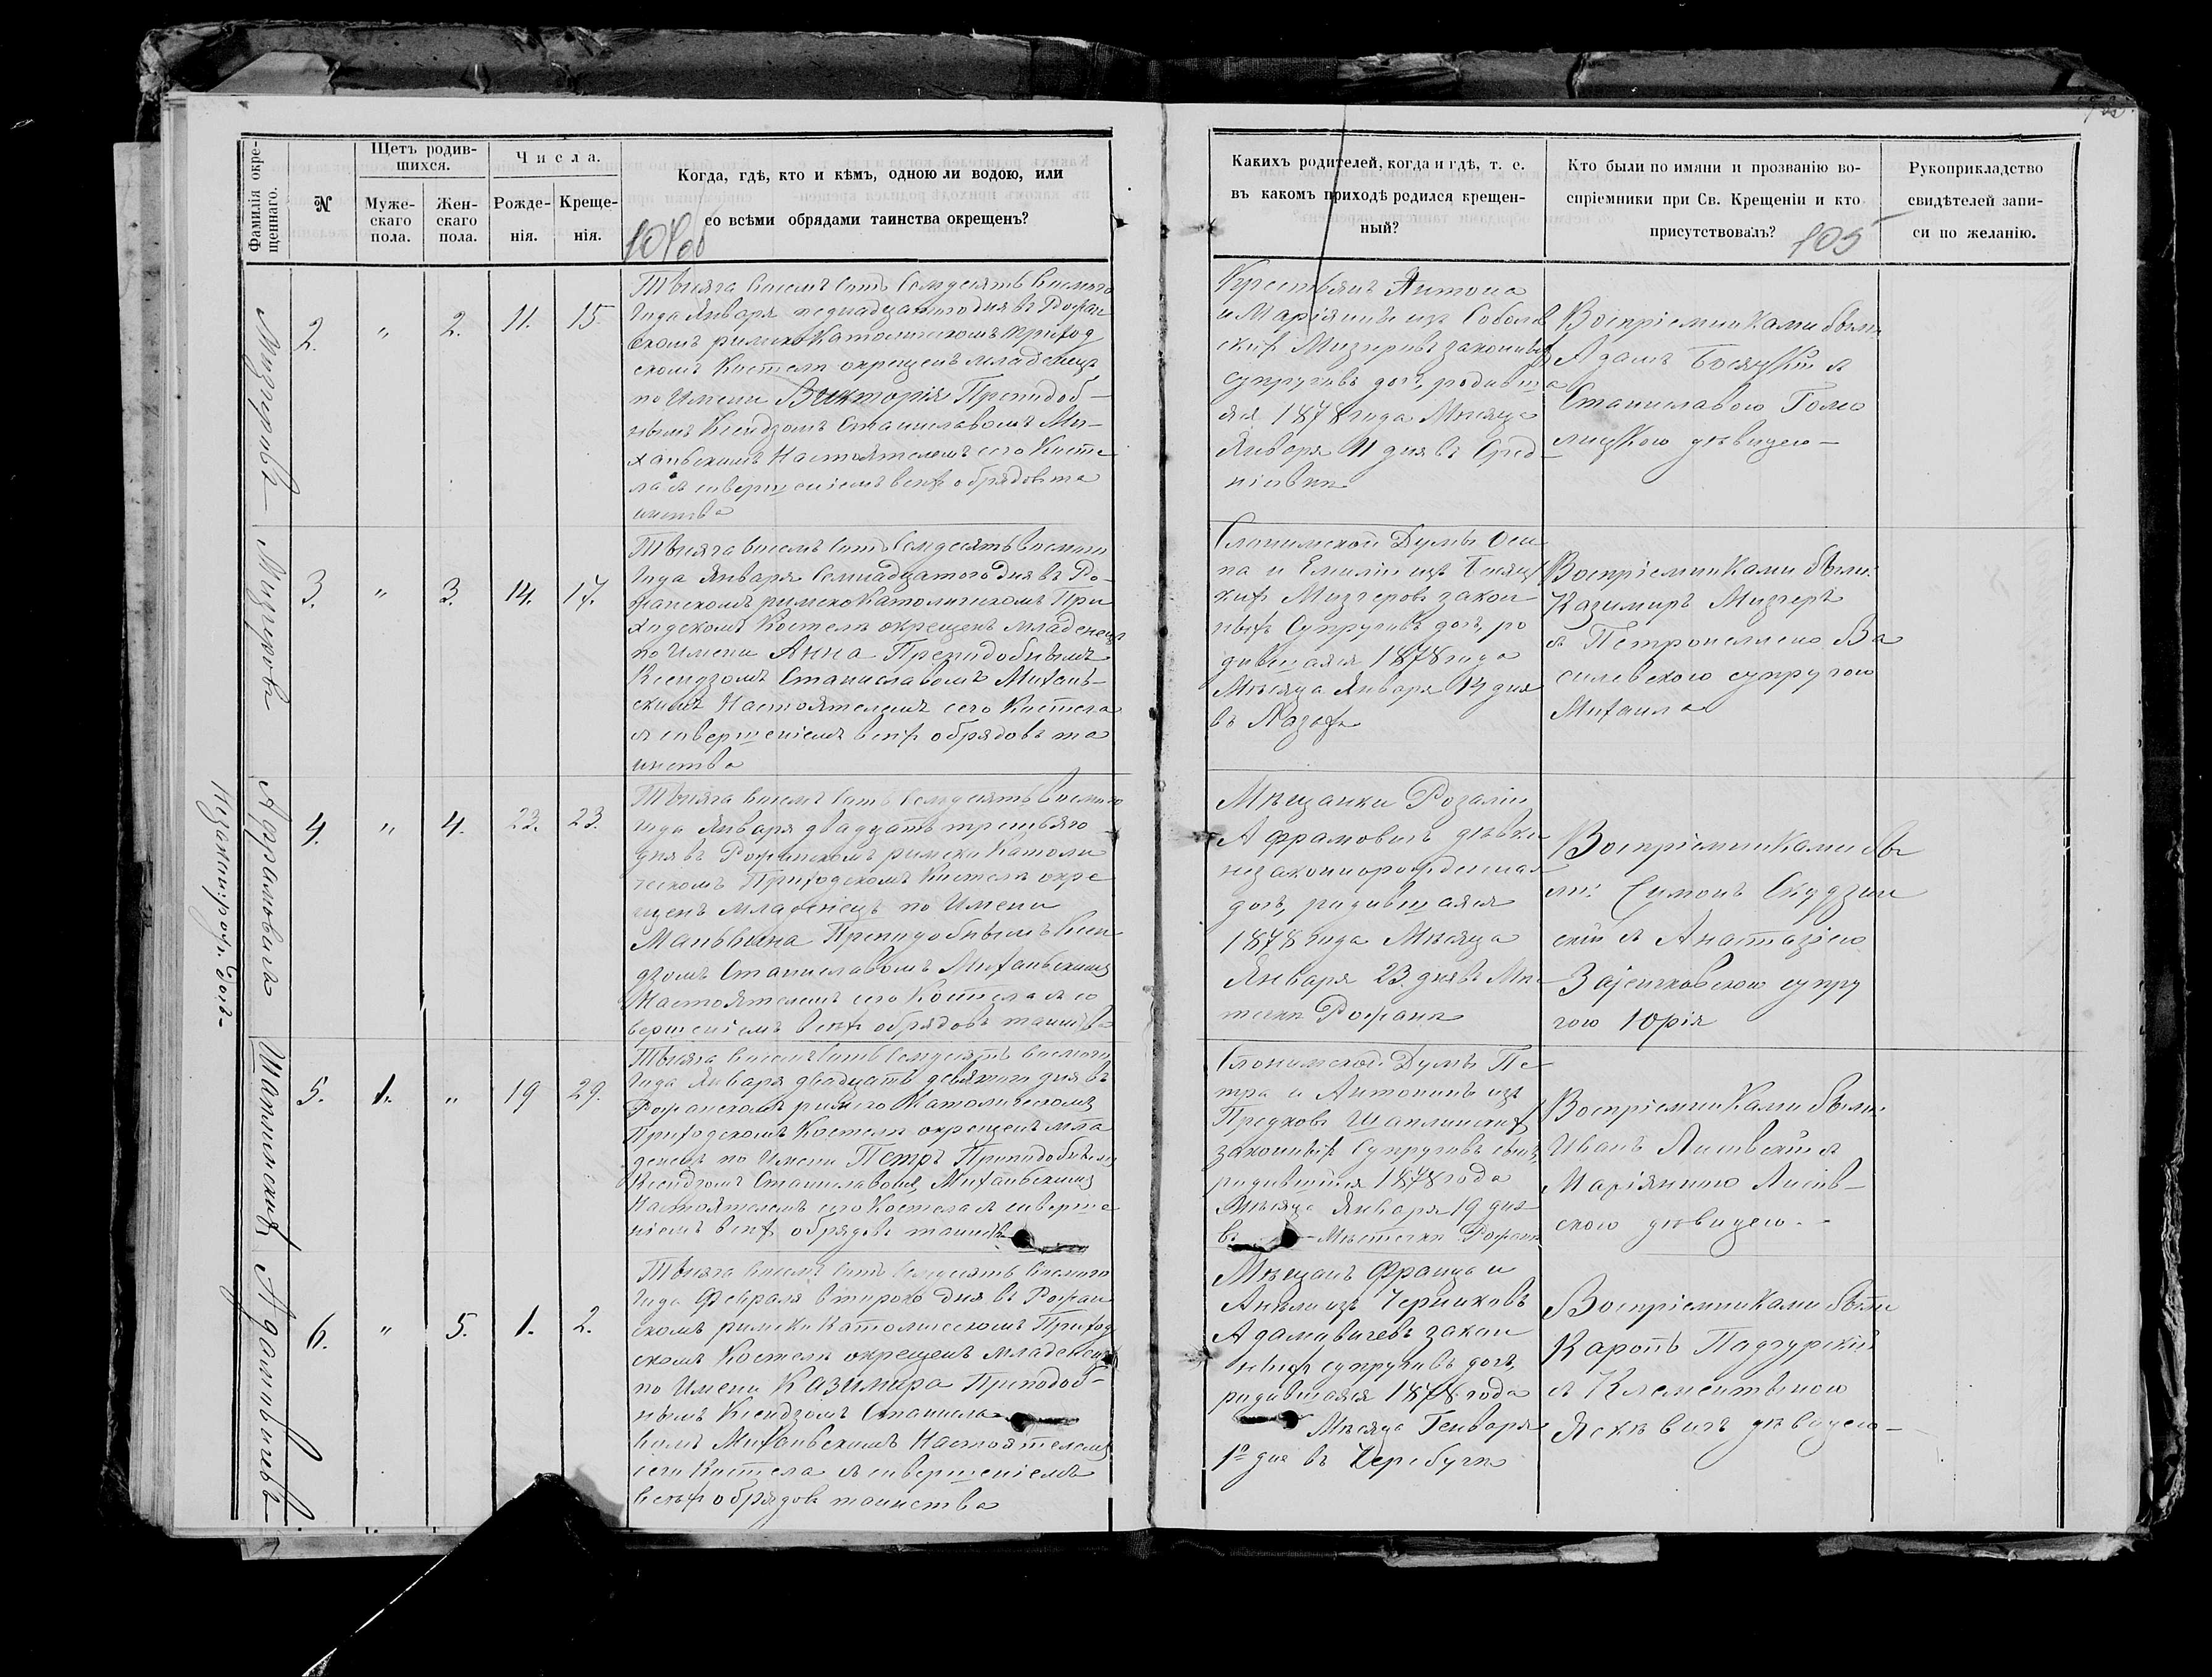 Фамилія окре-
щеннаго.
№
Щетъ родив-
шихся.
Муже-
скаго
пола.
Жен-
скаго
пола.
Числа.
Рожде-
нія.
Креще-
нія.
Когда, гдѣ, кто и кѣмъ, одною ли водою, или
со всѣми обрядами таинства окрещенъ?
Какихъ родителей, когда и гдѣ, т. е.
въ какомъ приходѣ родился крещен-
ный?
Кто были по имяни и прозванію во-
спріемники при Св. Крещеніи и кто
присутствовалъ?
105
Рукоприкладство
свидѣтелей запи-
си по желанію.
Мизгеровъ
2.
"
2.
11.
15.
Тысяча восемь сотъ семдесятъ восмого
года Января пятнадцатого дня въ Рожан
скомъ римско Католическомъ приход
скомъ Костелѣ окрещенъ младенецъ
по Имени Викторія Преподоб-
нымъ Ксендзомъ Станиславомъ Ми-
хальскимъ Настоятелемъ сего Косте
ла съ совершеніемъ всѣхъ обрядовъ та
инства
Крестьянъ Антона
и Маріянны изъ Соболев
скихъ Мизгеровъ законныхъ
супруговъ дочь, родивша
яся 1878 года Мѣсяца
Января 11 дня въ
Воспріемниками были
Адамъ Босяцкій съ
Станиславою Гомо
лицкою дѣвицею-
Мизгеровъ
3.
"
3.
14.
17.
Тысяча восемь сотъ семдесятъ восмого
года Января семнадцатого дня въ Ро-
жанскомъ римско Католическомъ При
ходскомъ Костелѣ окрещенъ младенецъ
по Имени Анна Преподобнымъ
Ксендзомъ Станиславомъ Михаль-
скимъ Настоятелемъ сего Костела
съ совершеніемъ всѣхъ обрядовъ та
инства
Слонимской Думы Оси
па и Емиліи изъ Босяц
кихъ Мизгеровъ закон
ныхъ Супруговъ дочь, ро
дившаяся 1878 года
Мѣсяца Января 14 дня
въ
Воспріемниками были:
Казимиръ Мизгеръ
съ Петронеллею Ва
силевскою супругою
Михаила
Афрамовичъ
Незаконнорож. дочь
4.
"
4.
23.
23.
Тысяча восемь сотъ семдесятъ восмого
года Января двадцать третьяго
дня въ Рожанскомъ римско Католи
ческомъ Приходскомъ Костелѣ окре
щенъ младенецъ по Имени
Мальвина Преподобнымъ Ксен
дзомъ Станиславомъ Михальскимъ
Настоятелемъ сего Костела съ со
вершеніемъ всѣхъ обрядовъ таинства
Мѣщанки Розаліи
Афрамовичъ дѣвки
незаконнорожденная
дочь, родившаяся
1878 года Мѣсяца
Января 23 дня въ Мѣ
стечкѣ Рожанѣ
Воспріемниками бы
ли: Симонъ
скій съ Анастазіею
Заіенчковскою супру
гою Юрія
Шаплинскихъ
5.
1.
"
19
29.
Тысяча восемь сотъ семдесятъ восмого
года Января двадцать девятого дня въ
Рожанскомъ римско Католическомъ
Приходскомъ Костелѣ окрещенъ мла
денецъ по Имени Петръ Преподобнымъ
Ксендзомъ Станиславомъ Михальскимъ
Настоятелемъ сего Костела съ соверше
ніемъ всѣхъ обрядовъ таинства
Слонимской Думы Пе
тра и Антонины изъ
Предковъ Шаплинскихъ
законныхъ Супруговъ сынъ,
родившійся 1878 года
Мѣсяца Января 19 дня
въ Мѣстечкѣ Рожанѣ
Воспріемниками были:
Иванъ Лисовскій съ
Маріянною Лисов-
скою дѣвицею.-
Адамовичевъ
6.
"
5.
1.
2.
Тысяча восемь сотъ семдесятъ восмого
года Февраля второго дня въ Рожан
скомъ римско Католическомъ Приход
скомъ Костелѣ окрещенъ младенецъ
по Имени Казимира Преподоб-
нымъ Ксендзомъ Станисла
вомъ Михальскимъ Настоятелемъ
сего Костела съ совершеніемъ
всѣхъ обрядовъ таинства
Мѣщанъ Франца и
Анели изъ Черниковъ
Адамовичевъ закон
ныхъ супруговъ дочь,
родившаяся 1878 года
Мѣсяца Генваря
1го дня въ
Воспріемниками были
Каролъ Падгурскій
съ Клементыною
дѣвицею-